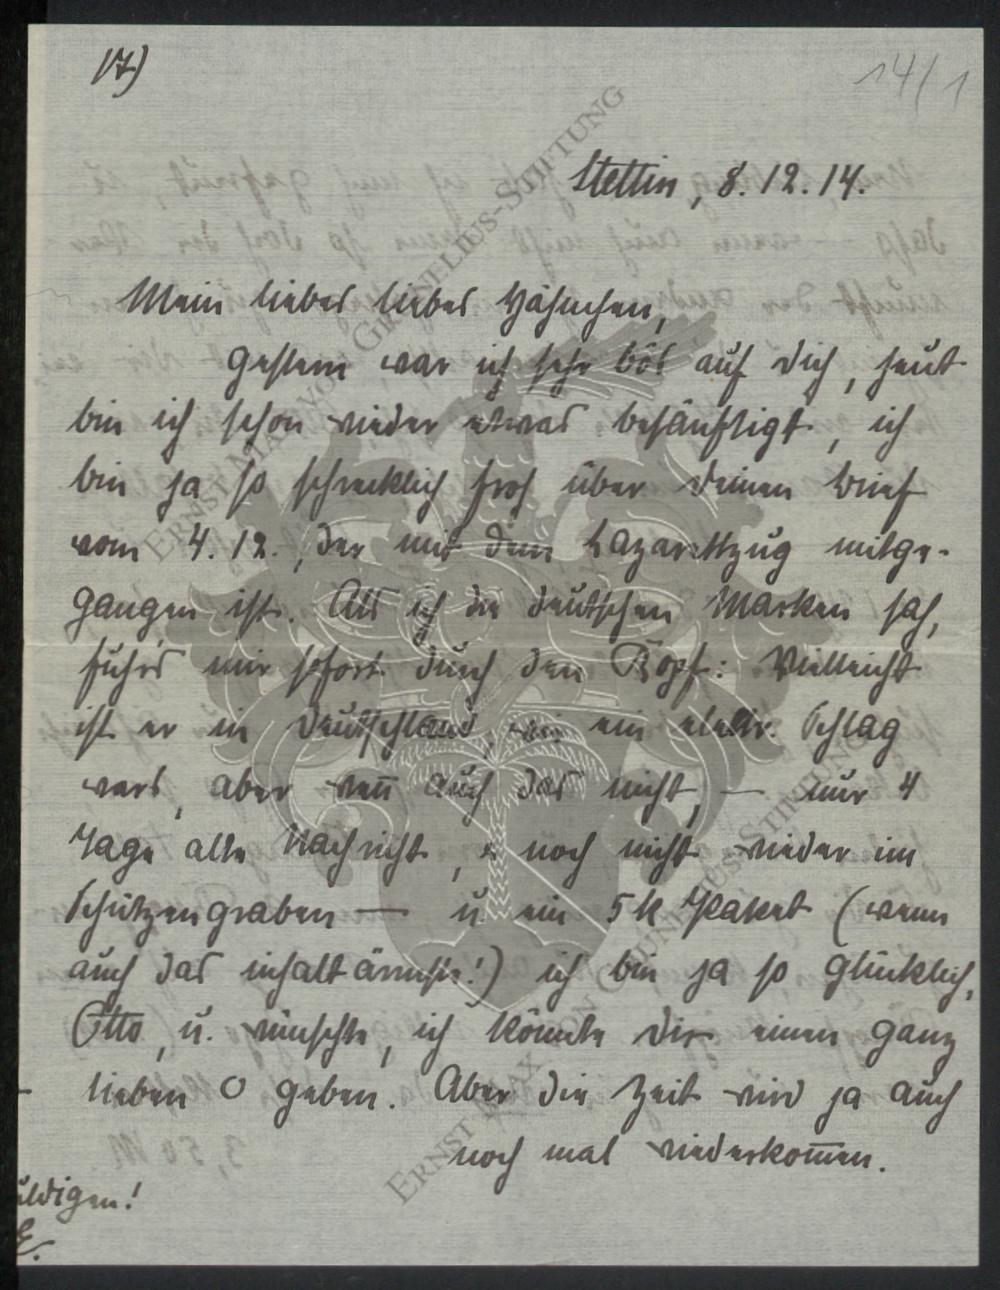 17)
14/1
Stettin, 8.12.14.
Mein liebes liebes Hähnchen,
gestern war ich sehr bös auf Dich, heut
bin ich schon wieder etwas besänftigt, ich
bin ja so schrecklich froh über Deinen Brief
vom 4.12., der mit dem Lazarettzug mitge-
gangen ist. Als ich die deutschen Marken sah,
fuhr's mir sofort durch den Kopf: Vielleicht
ist er in Deutschland, wie ein elektr. Schlag
wars, aber wenn auch das nicht, — nur 4
Tage alte Nachricht, noch nicht wieder im
Schützengraben — u. ein 5 K Paket (wenn
auch das inhaltärmste!) ich bin ja so glücklich,
Otto, u. wünschte, ich könnte Dir einen ganz
lieben O geben. Aber die Zeit wird ja auch
noch mal wiederkom̅en.
uldigen!
ERNST MAX VON GRUNELIUS-STIFTUNG
ERNST MAX VON GRUNELIUS-STIFTUNG